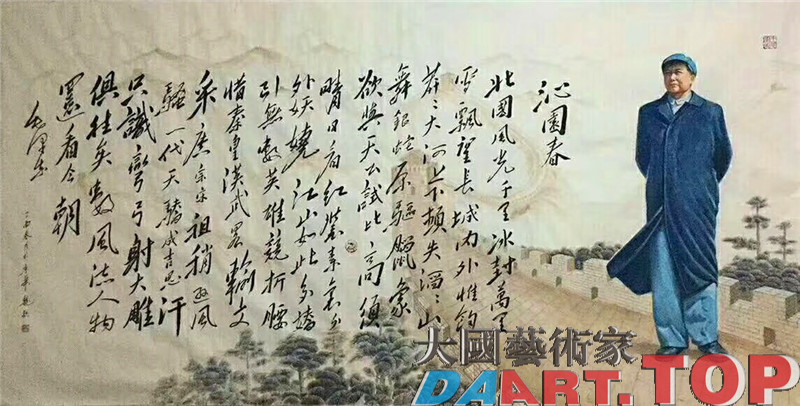 沁園春
北國風光千里冰封萬里
雪飄望長城內外惟餘
莽〻大河上下頓失滔〻山
舞銀蛇原驅臘象
欲與天公試比高須
晴日看紅裝素裹分
外妖嬈江山如此多嬌
引無數英雄競折腰
惜秦皇漢武畧輸文
采唐宗宋祖稍遜風
騷一代天驕成吉思汗
只識彎弓射大雕
俱往矣數風流人物
還看今朝
毛澤東
大國藝術家
DAART.TOP